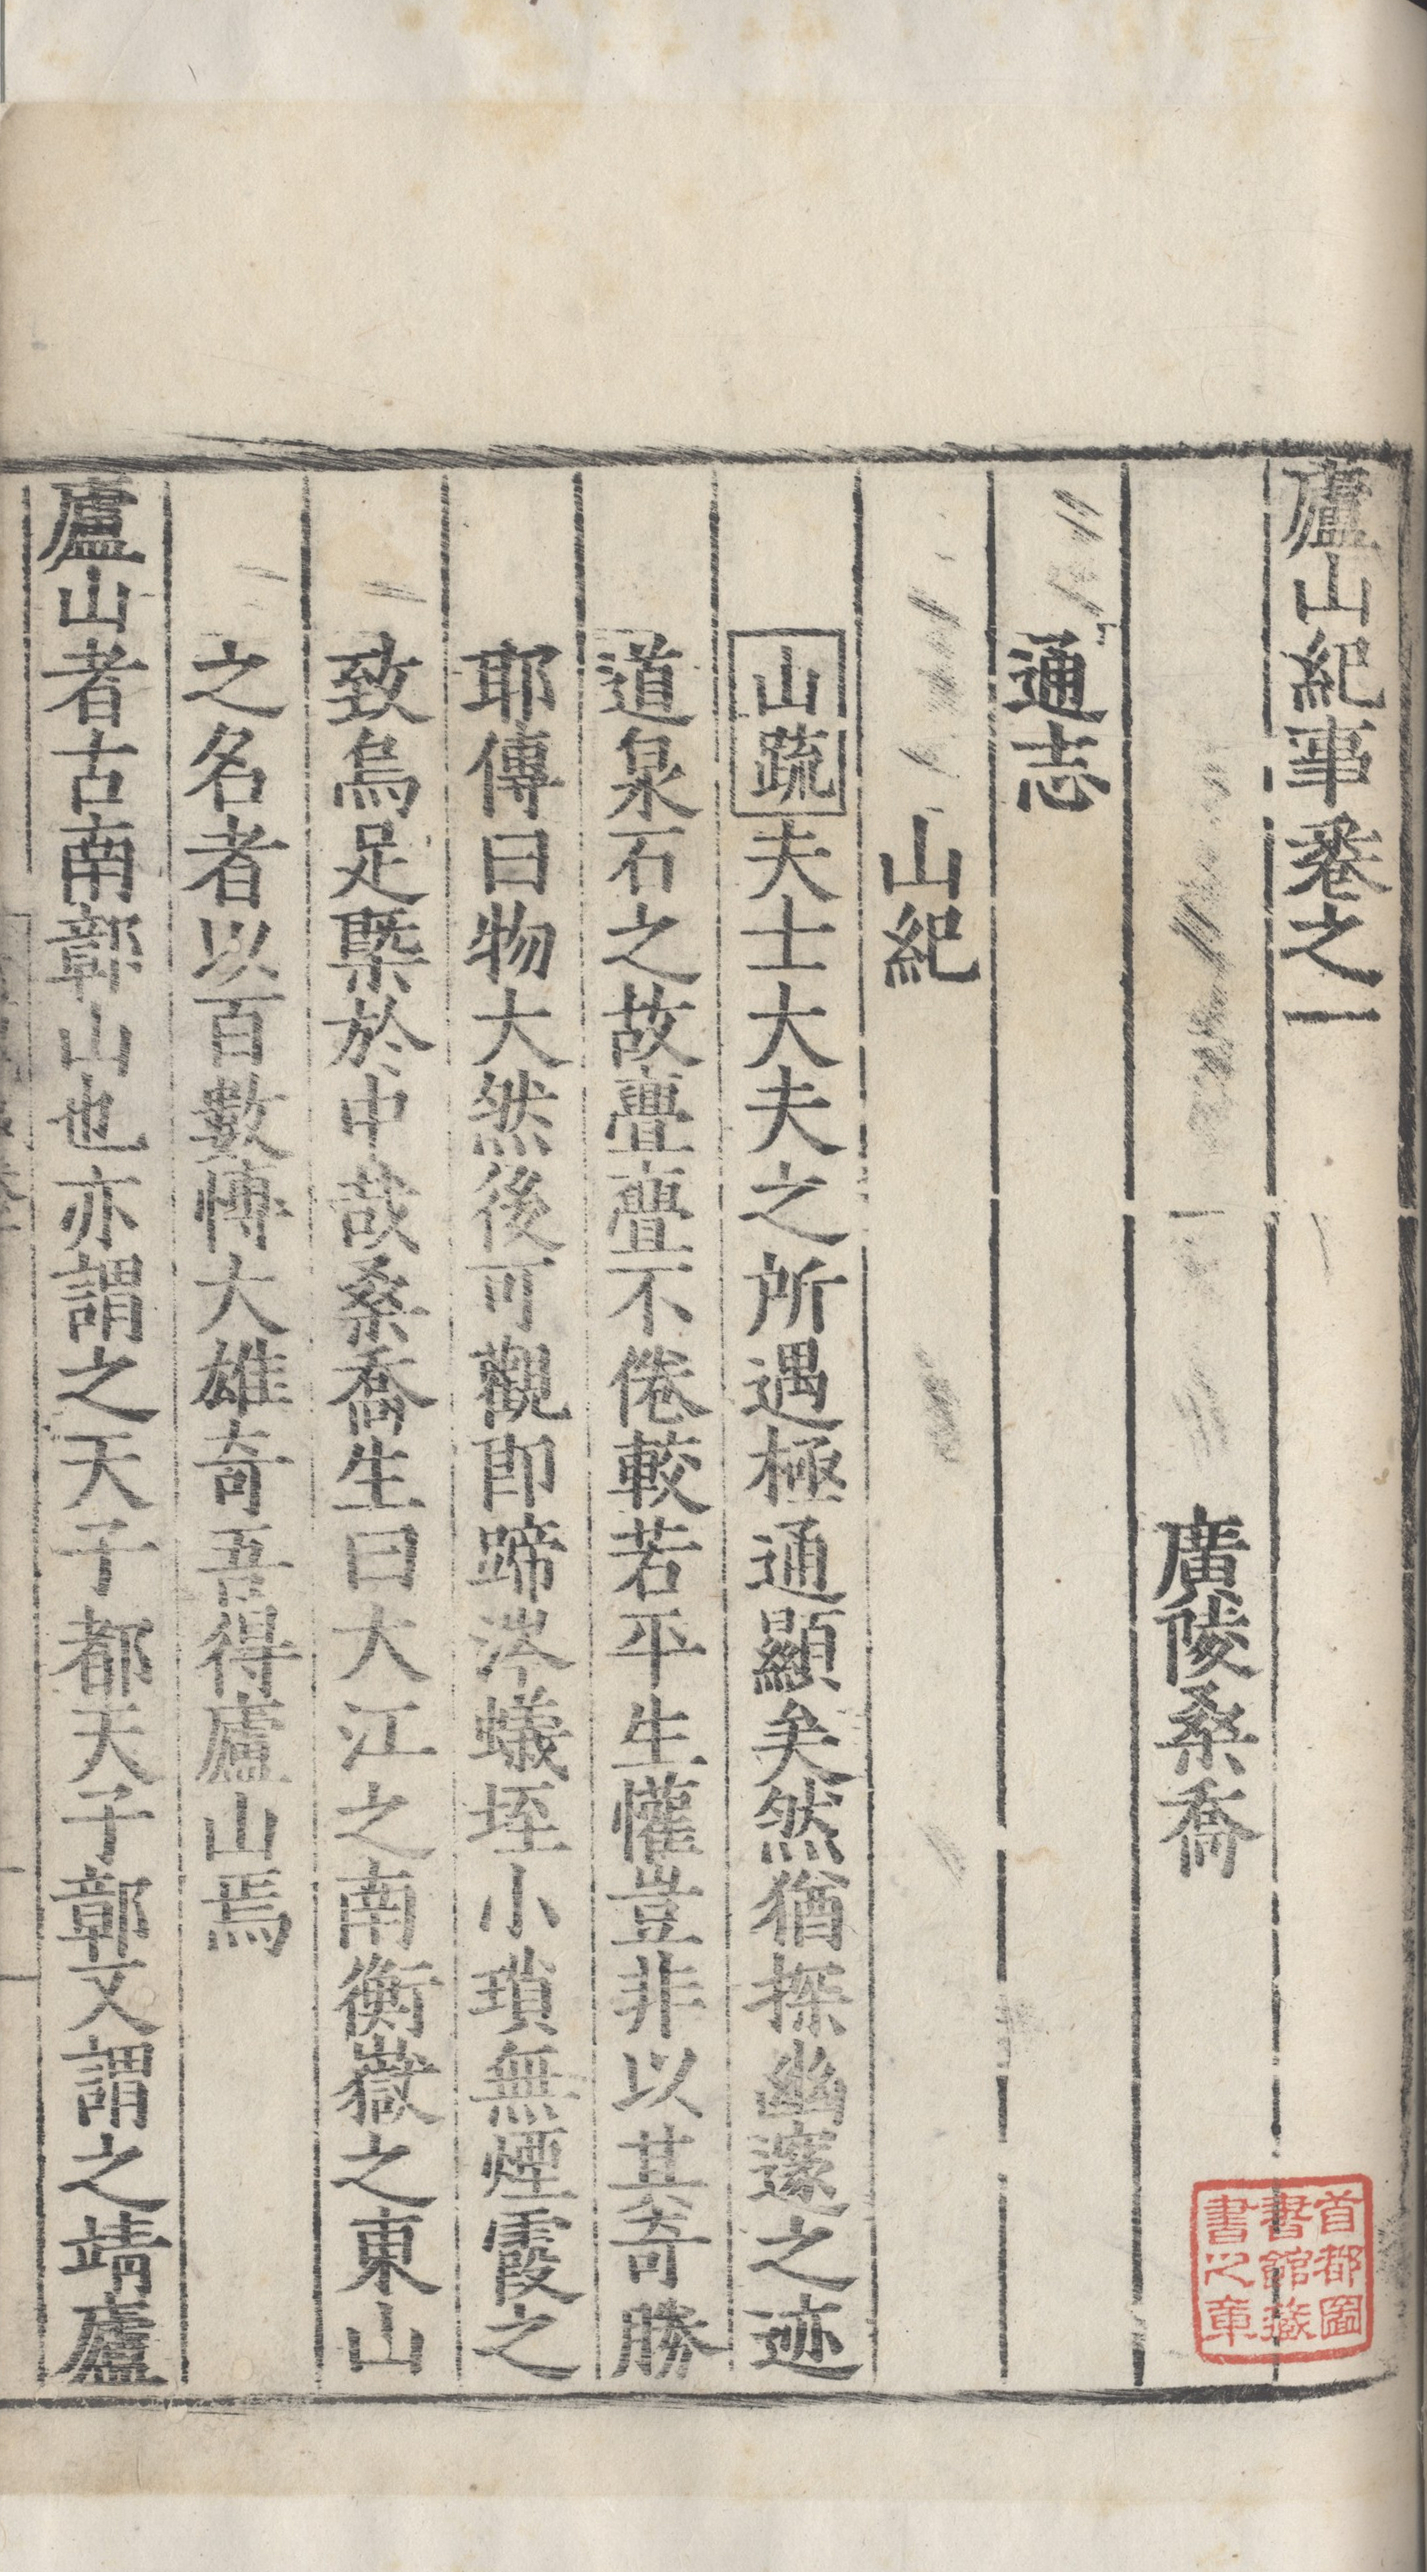 廬山紀事卷之一
廣陵桑喬
通志
山紀
山疏夫士大夫之所遇極通顯矣然猶探幽邃之迹
道泉石之故亹亹不倦較若平生懽豈非以其奇勝
耶傳曰物大然後可觀即蹄涔蟻垤小瑣無煙霞之
致烏足槩於中哉桑喬生曰大江之南衡嶽之東山
之名者以百數慱大雄奇吾得廬山焉
廬山者古南鄣山也亦謂之天子都天子鄣又謂之靖廬
首都圖
書館藏
書之章